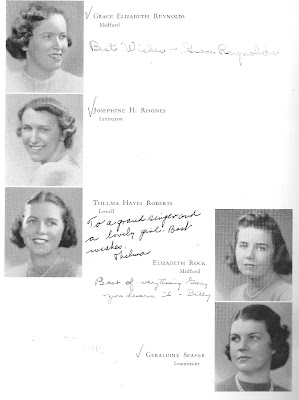 Grace Elizabeth Reynolds
Medford
Best Wishes - Grace Reynolds
Josephine H. Rhones
Lexington
Thelma Hayes Roberts
Lowell
To a grand singer and
a lovely girl. Best
wishes
Thelma
Elizabeth Rock
Medford
Best of everything
you deserve it - Betty
Geraldine Seaver
Leominster